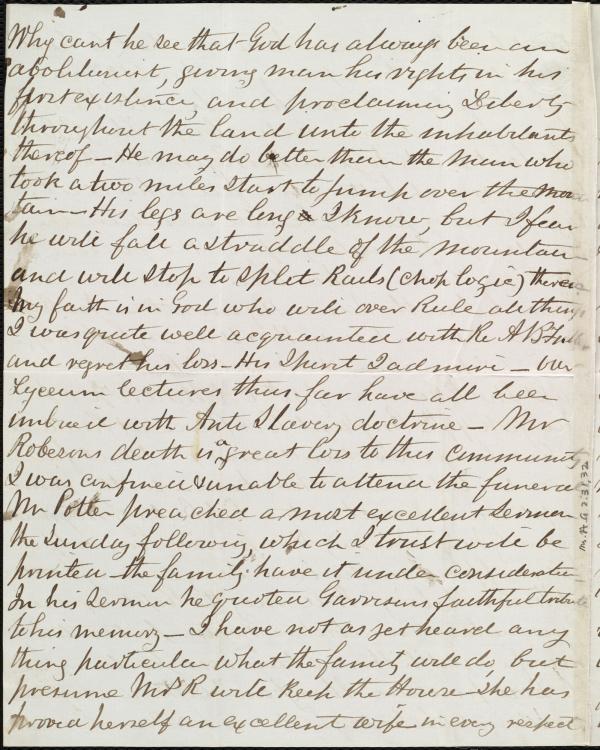 Why cant he see that God has always been an
abolitionist, giving man his rights in his
first existence, and proclaiming Liberty
throughout the land unto the inhabitants
thereof - He may do better than the man who
took a two miles start to jump over the moun
tain - His legs are long I know, but I fear
he will fall a straddle of the mountain
and will stop to split Rails (chop logic) there
My faith is in God who will over Rule all things
I was quite well acquainted with Re A B
and regret his loss - His Spirit I admire - our
Lyceum lectures thus far have all been
imbued with Anti Slavery doctrine - Mr
Robesons death is a great loss to this community
I was confined & unable to attend the funeral
Mr Potter preached a most excellent Sermon
the Sunday following, which I trust will be
printed - the family have it under consideration
In his Sermon he quoted Garrisons faithful tribute
to his memory - I have not as yet heard any
thing particular what the family will do, but
presume Mrs R will keep the House - She has
proved herself an excellent wife in every respect
M.A.G 2.31.32